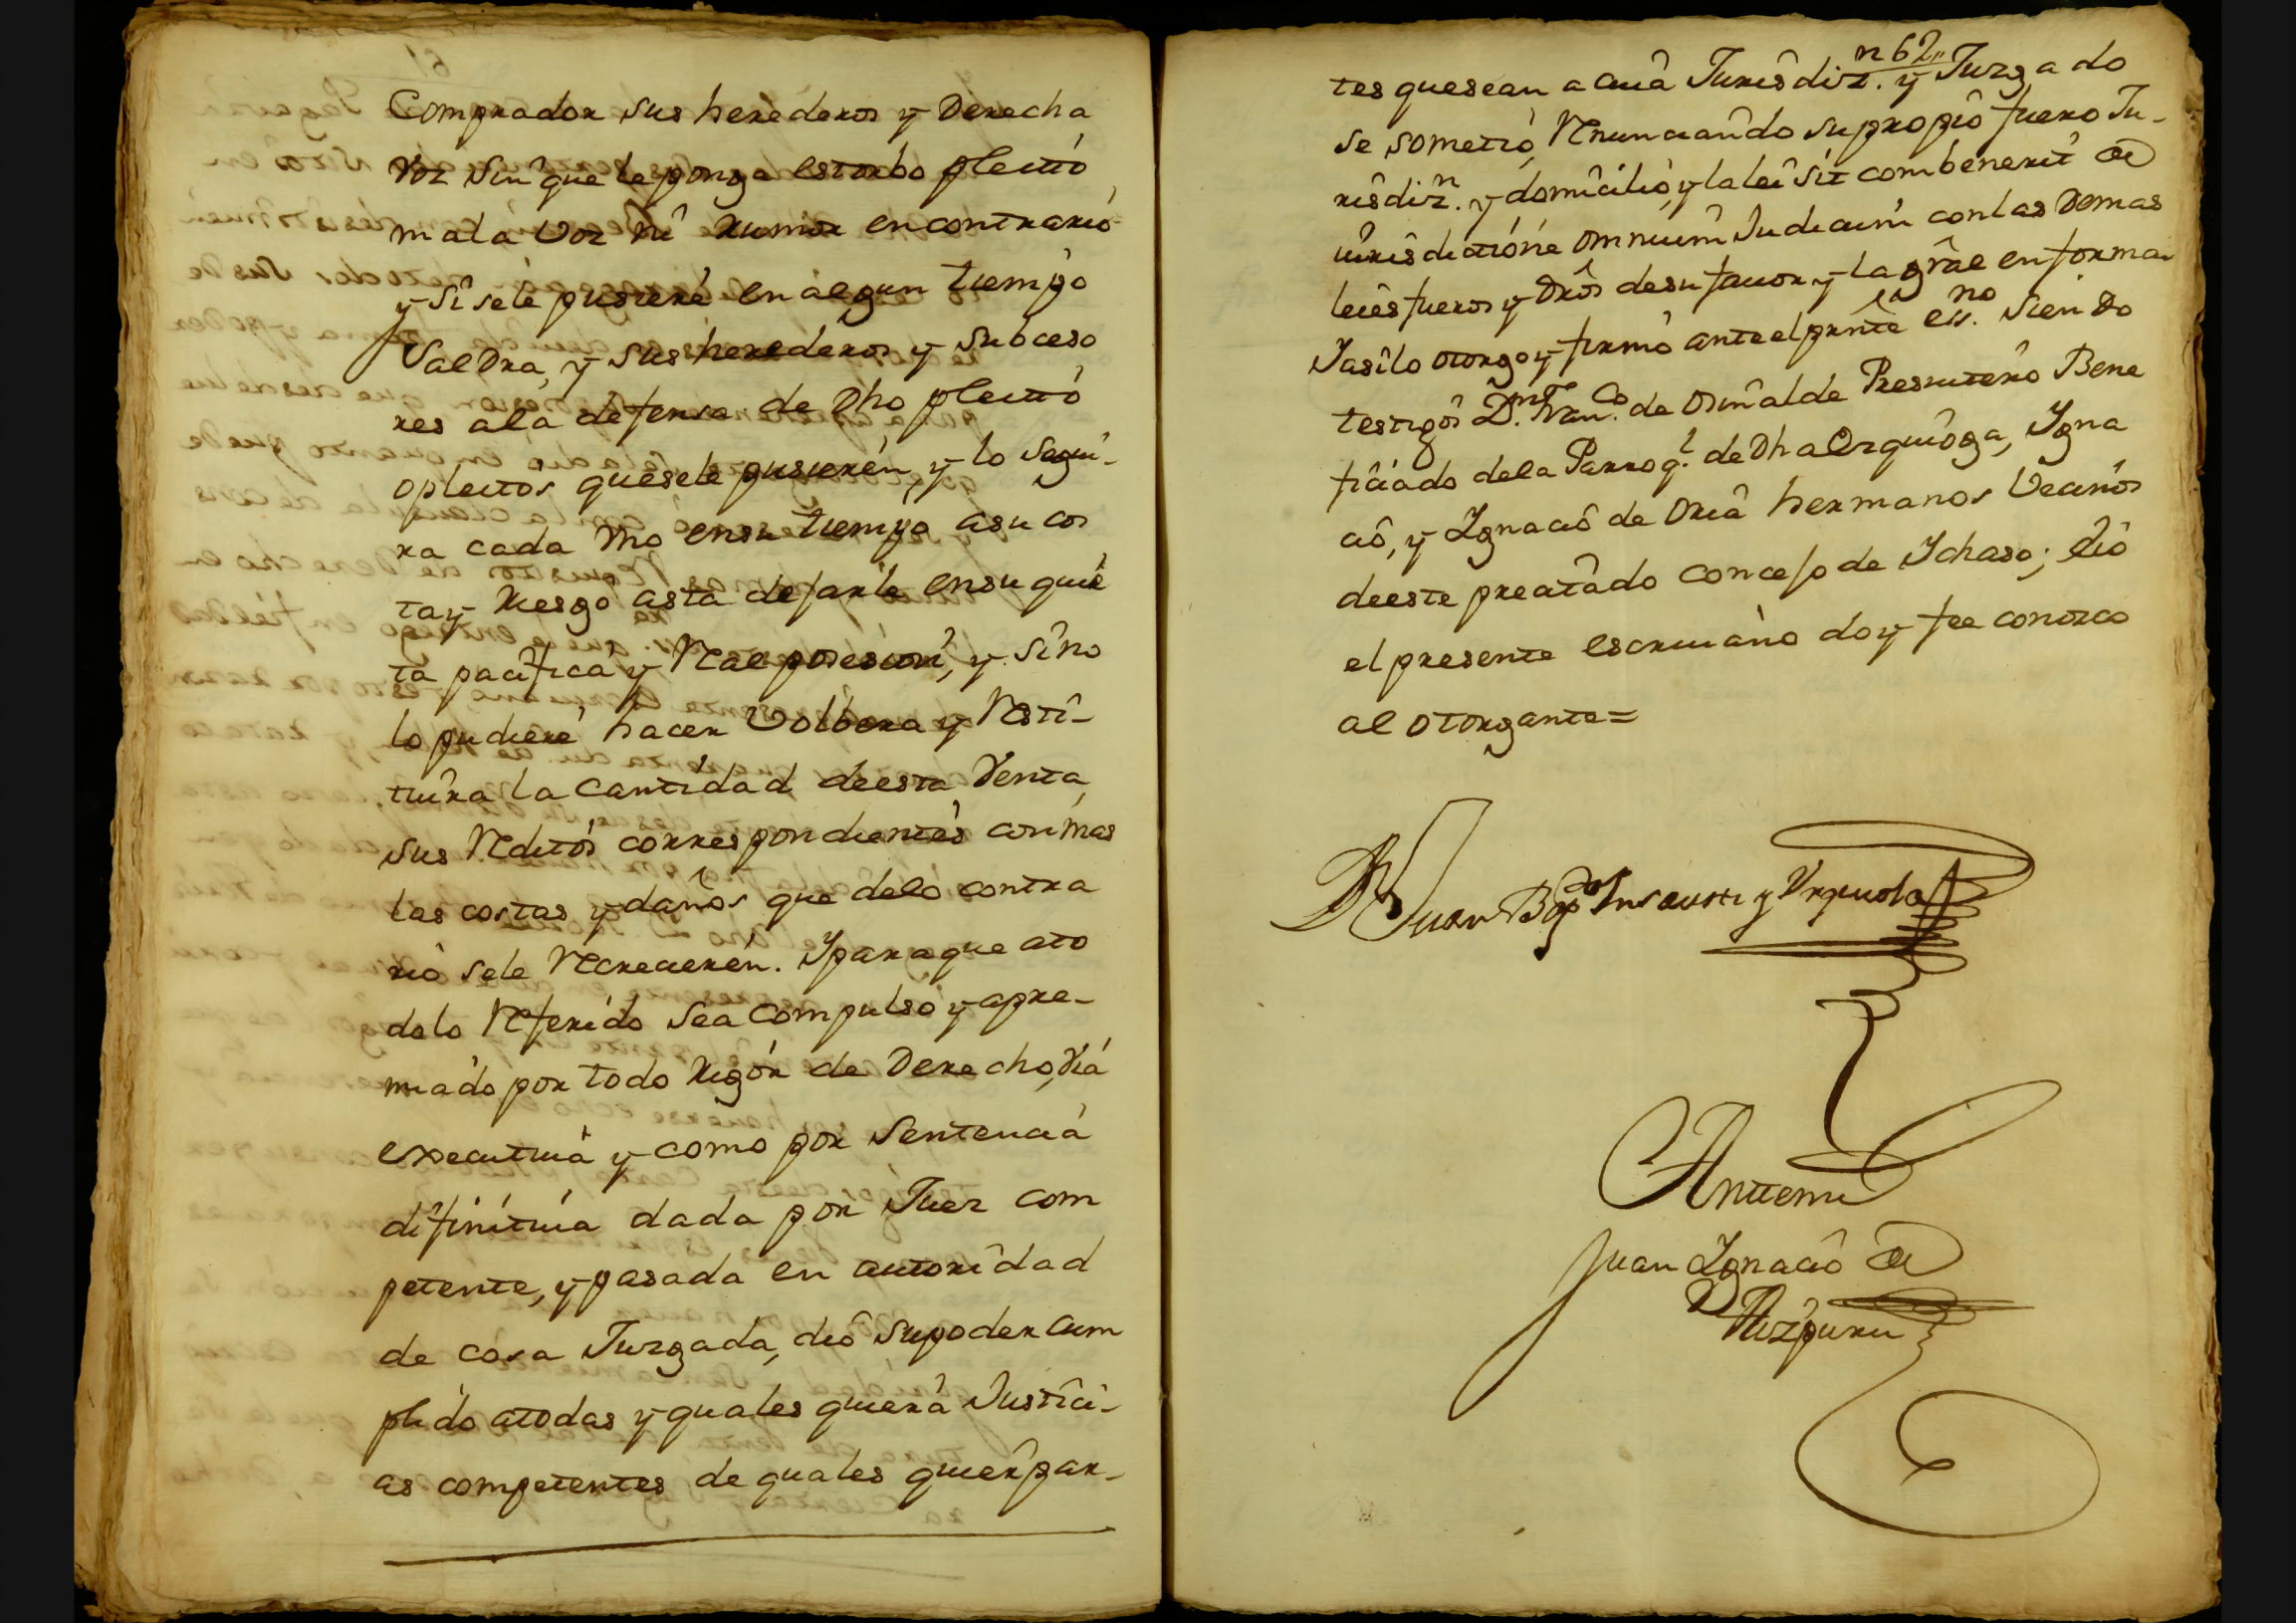 Comprador sus herederos y Derecha
voz sin que le ponga estorbo pleito
mala voz ni rumor en contrario
y si sele pusiere en algun tiempo
Saldra, y sus herederos y subceso
res ala defensa de Dho pleito
opleitos quesele pusieren, y lo segui-
ra cada Uno ensu tiempo asu cos
tay riesgo asta dejarle ensu quie
ta pacifica y Real posesion, y sino
lo pudiere hacer Volbera y Resti-
tuira la cantidad deesta Venta,
sus Reditos correspondientes con mas
las costas y daños que delo contra
rio sele Recrecieren. Yparaque ato
dolo Referido sea compulso y apre-
miado por todo rigor de Derecho, via
executiva y como por sentencia
difinitiva dada por Juez com
petente, y pasada en autoridad
de cosa Juzgada, dió supoder cum
plido atodas y quales quiera Justici-
as competentes de quales quier par-
n 62,,
tes quesean a cuia Jurisdizn. y Juzgado
se sometio, Renunciando supropio fuero Ju-
risdizn. y domicilio, y la lei sit combenerit de
iurisdictione omnium Judicum con las Demas
leies fueros y Dros desu favor y la grāl en forma
Jasilo otorgo y firmo ante el prnte essno. siendo
testigos D.n Franco. de Osinalde Presvitero Bene
ficiado dela Parroqa. de Dha Ezquioga, Ygna
cio, y Ygnacio de Oria hermanos Vecinos
deeste precitado concejo de Ychaso; Eio
el presente escrivano doy fee conozco
al otorgante=
Dn Juan Bapta Insausti y Urquiola
Anttemi
Juan Ygnacio de
Aizpuru